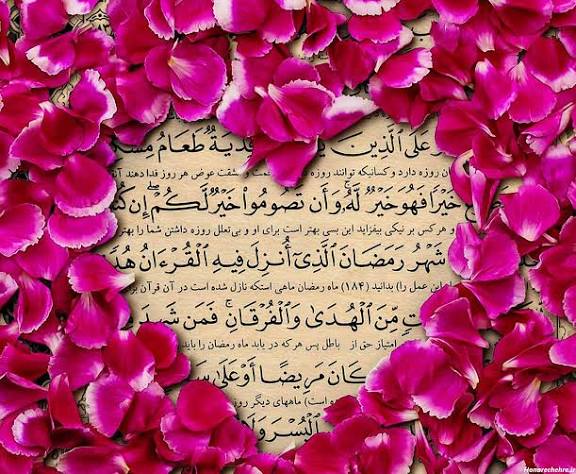 عَلَى ٱلَّذِينَ فِدْيَةٌ طَعَامُ
روزه دارد و کسانیکه توانند روزه و مشقت عوض هر روز فدا دهند
خَيْرًا فَهُوَ خَيْرٌ لَّهُۥ وَأَن تَصُومُوا۟ خَيْرٌ لَّكُمْ إِن
و هر کس بر نیکی بیفزاید این بسی بهتر است برای او و بی‌تعلل روزه داشتن شما را بهتر
شَهْرُ رَمَضَانَ ٱلَّذِىٓ أُنزِلَ فِيهِ ٱلْقُرْءَانُ
این عمل را) بدانید (۱۸۴) ماه رمضان ماهی استکه نازل شده است در آن قرآن
مِّنَ ٱلْهُدَىٰ وَٱلْفُرْقَانِ ۚ فَمَن
امتیاز حق از باطل پس هر که در یابد ماه رمضان را باید
كَانَ مَرِيضًا أَوْ عَلَىٰ
است) ماههای دیگر
ٱلْيُسْرَ وَلَا